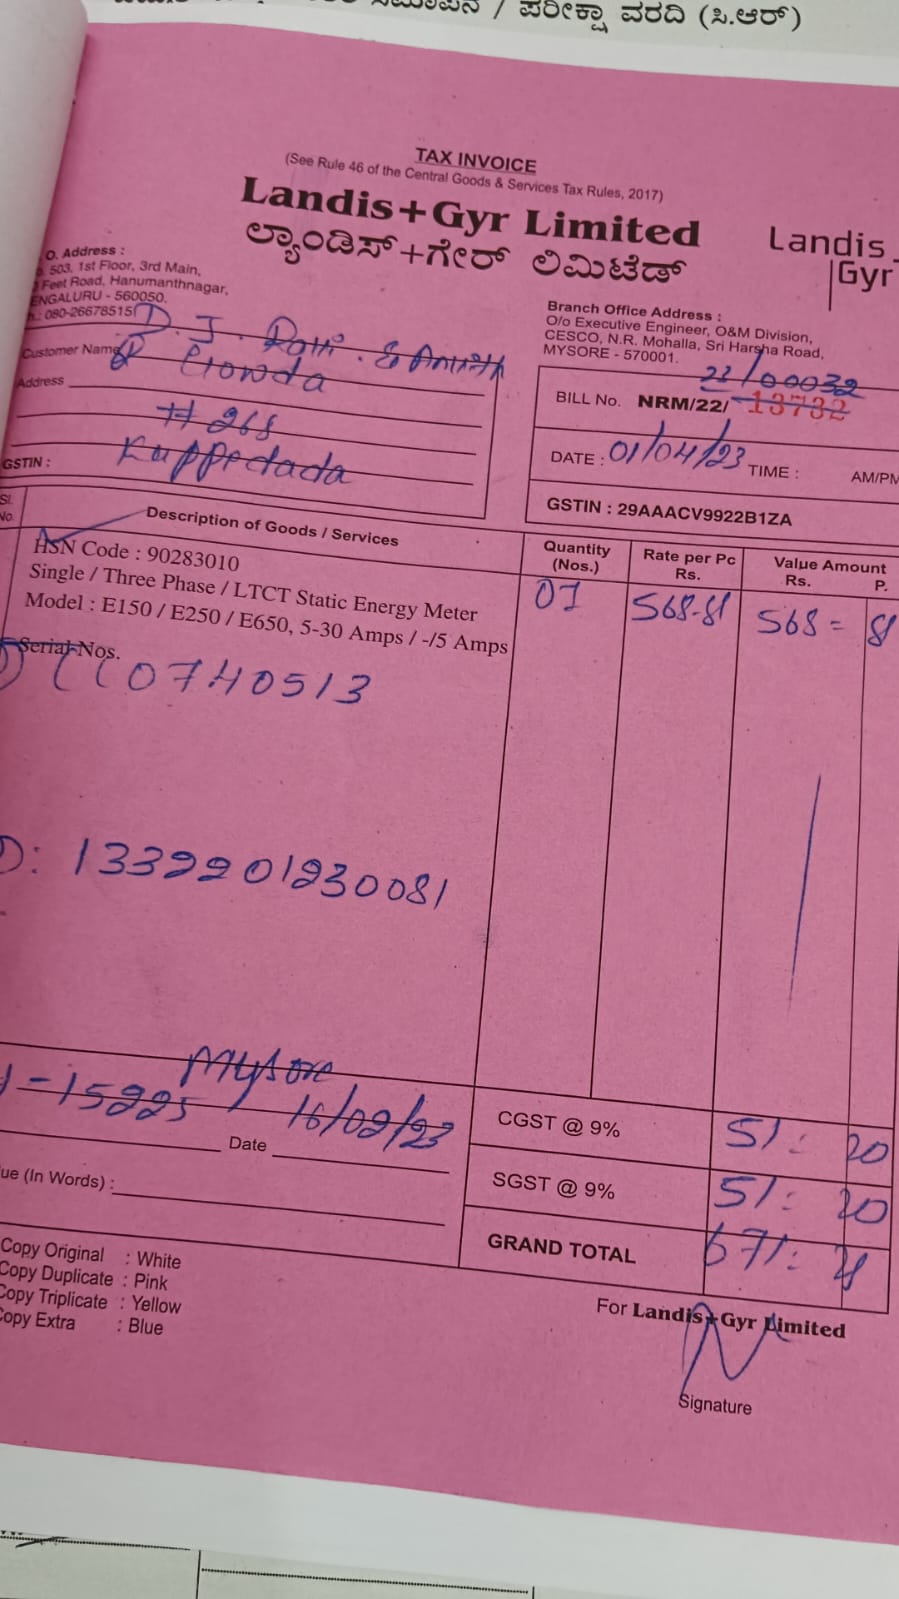 ಪರೀಕ್ಷಾ ವರದಿ (ಸಿ.ಆರ್)
TAX INVOICE
(See Rule 46 of the Central Goods & Services Tax Rules, 2017)
Landis+Gyr Limited
ಲ್ಯಾಂಡಿಸ್+ಗೇರ್ ಲಿಮಿಟೆಡ್
Landis
Gyr
O. Address :
503, 1st Floor, 3rd Main,
Feet Road, Hanumanthnagar,
ENGALURU - 560050.
080-26678515
Branch Office Address :
O/o Executive Engineer, O&M Division,
CESCO, N.R. Mohalla, Sri Harsha Road,
MYSORE - 570001.
Customer Name D. J.
Gowda
Address
# 268
GSTIN : Kuppedada
22/00032
BILL No. NRM/22/ 13732
DATE : 01/04/23 TIME : AM/PM
GSTIN : 29AAACV9922B1ZA
Sl. No. Description of Goods / Services Quantity (Nos.) Rate per Pc Rs. Value Amount Rs. P.
HSN Code : 90283010
Single / Three Phase / LTCT Static Energy Meter
Model : E150 / E250 / E650, 5-30 Amps / -/5 Amps
01 568-81 568= 81
Serial Nos.
0740513
1332201230081
Mysore
15225 16/02/23
Date
CGST @ 9% 51: 20
SGST @ 9% 51: 20
ue (In Words) :
GRAND TOTAL 671: 21
Copy Original : White
Copy Duplicate : Pink
Copy Triplicate : Yellow
Copy Extra : Blue
For Landis+Gyr Limited
Signature